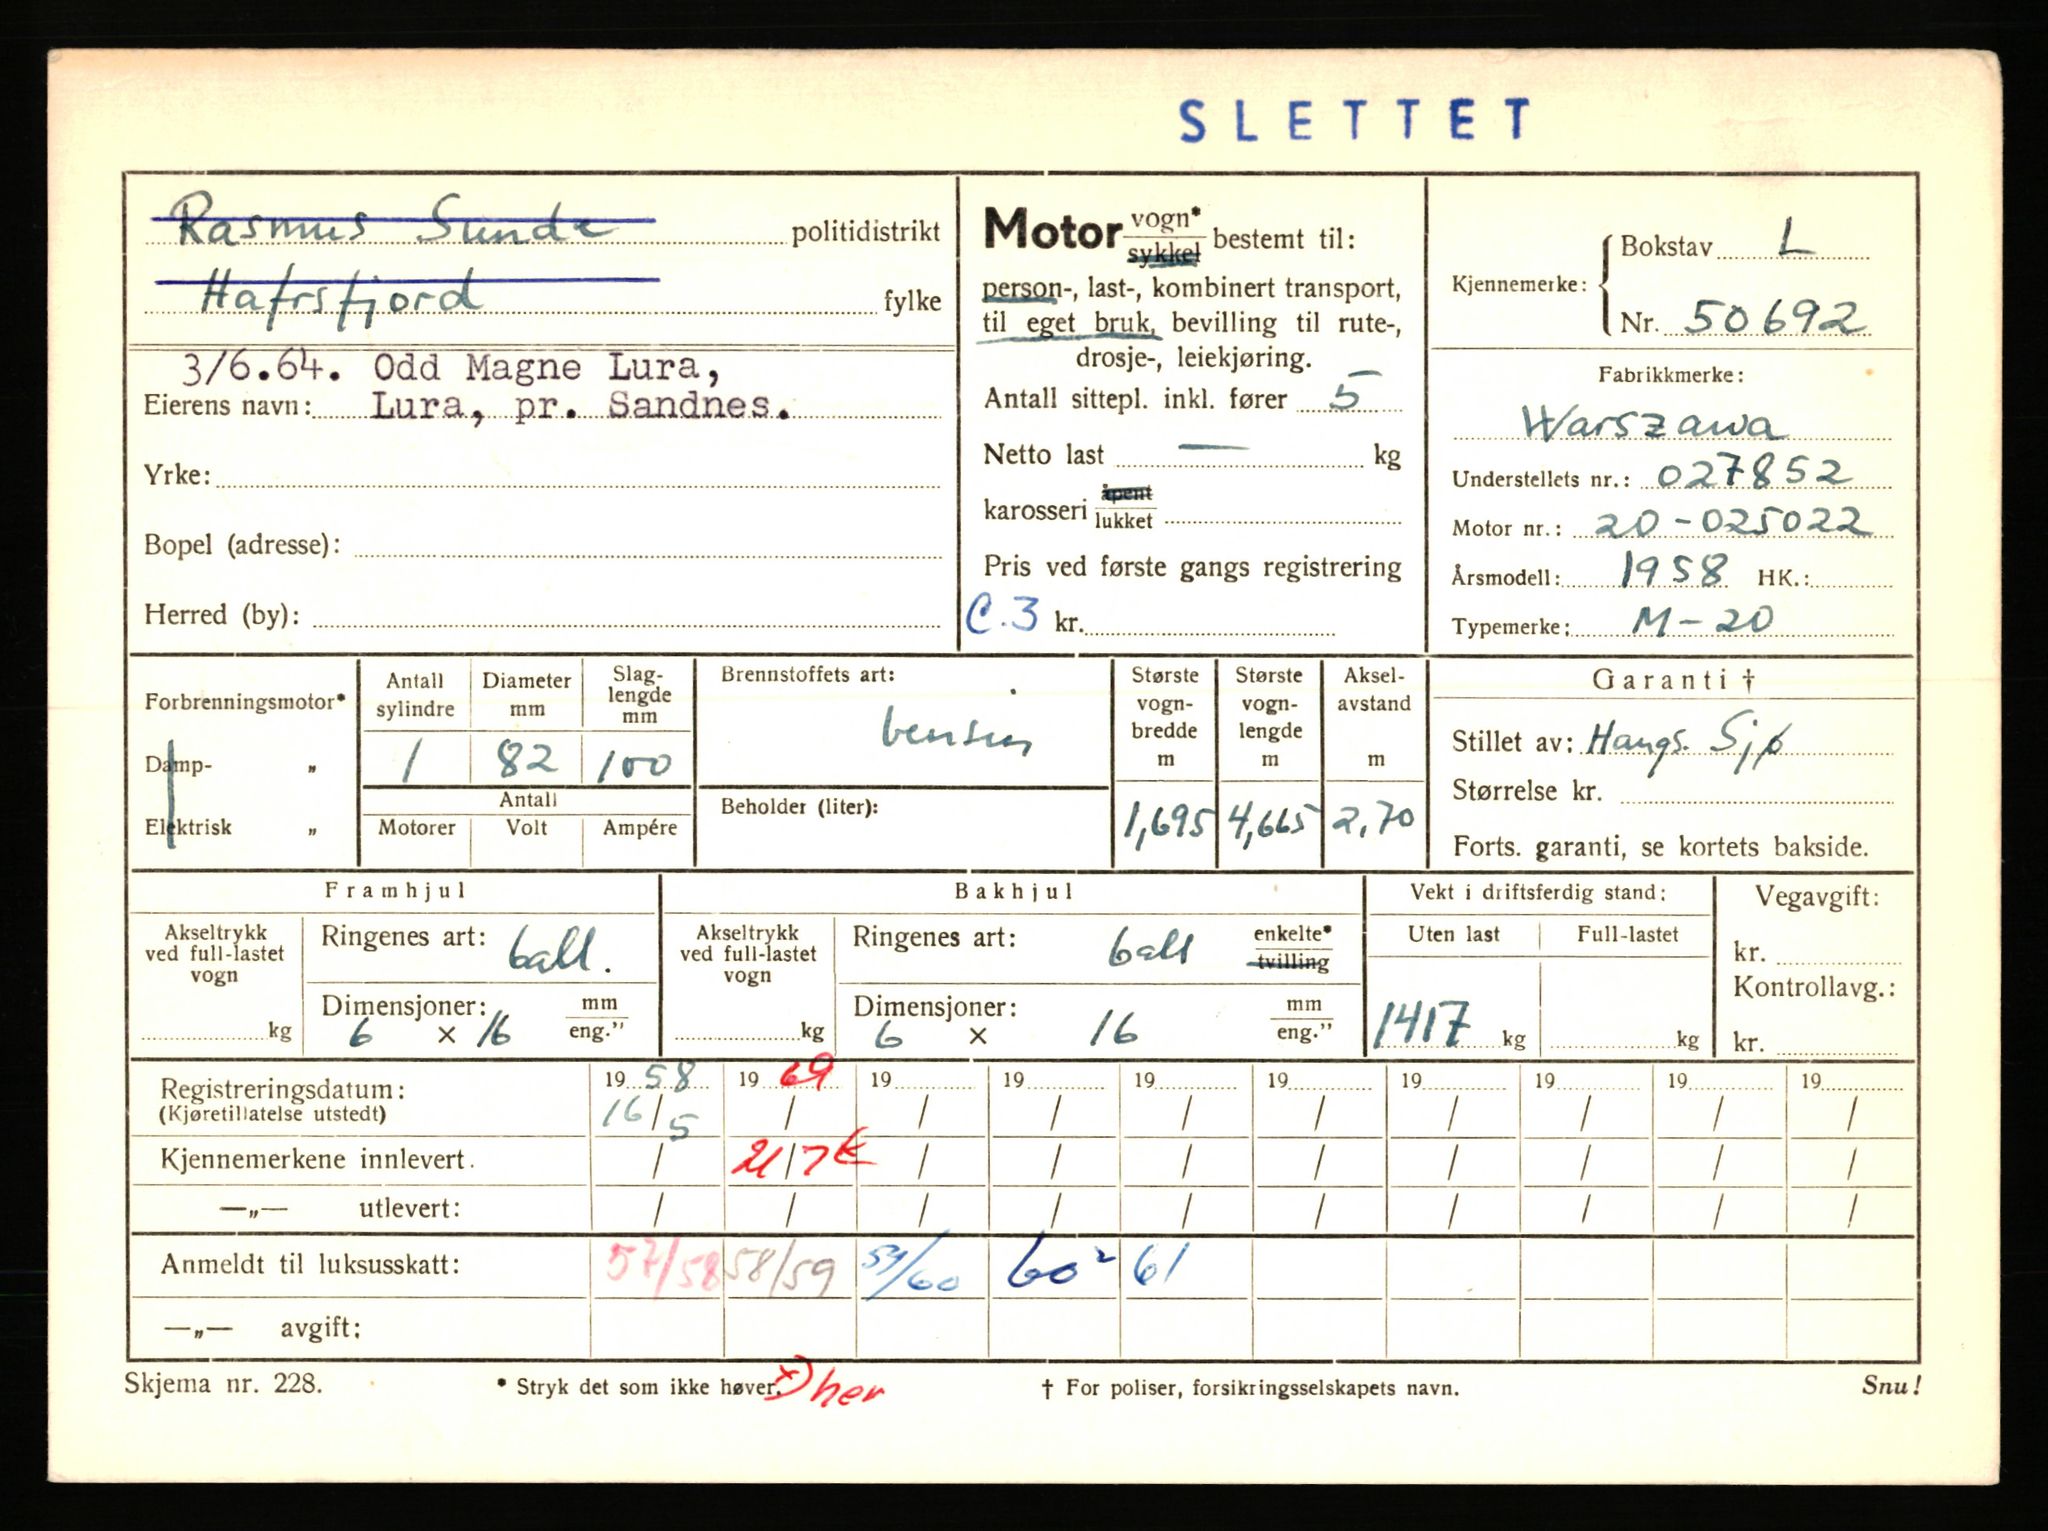 SLETTET
Rasmus Sunde politidistrikt
Hafrsfjord fylke
3/6.64. Odd Magne Lura,
Eierens navn: Lura, pr. Sandnes.
Yrke:
Bopel (adresse):
Herred (by):
Motor vogn* sykkel bestemt til:
person-, last-, kombinert transport,
til eget bruk, bevilling til rute-,
drosje-, leiekjøring.
Antall sittepl. inkl. fører 5
Netto last — kg
karosseri åpent lukket
Pris ved første gangs registrering
C.3 kr.
Kjennemerke: Bokstav L
Nr. 50692
Fabrikkmerke:
Warszawa
Understellets nr.: 027852
Motor nr.: 20-025022
Årsmodell: 1958 HK.:
Typemerke: M-20
Forbrenningsmotor*
Damp- „
Elektrisk „
Antall sylindre 1
Diameter mm 82
Slag-lengde mm 100
Antall
Motorer Volt Ampére
Brennstoffets art:
bensin
Beholder (liter):
Største vogn-bredde m 1,695
Største vogn-lengde m 4,665
Aksel-avstand m 2,70
Garanti †
Stillet av: Haugs. Sjø
Størrelse kr.
Forts. garanti, se kortets bakside.
Framhjul
Akseltrykk ved full-lastet vogn
kg
Ringenes art: ball.
Dimensjoner: mm
6 × 16 eng."
Bakhjul
Akseltrykk ved full-lastet vogn
kg
Ringenes art: ball enkelte* tvilling
Dimensjoner: mm
6 × 16 eng."
Vekt i driftsferdig stand:
Uten last Full-lastet
1417 kg kg
Vegavgift:
kr.
Kontrollavg.:
kr.
Registreringsdatum: 1958 1969 19 19 19 19 19 19 19 19
(Kjøretillatelse utstedt) 16/5 / / / / / / / / /
Kjennemerkene innlevert. / 21/7 / / / / / / / /
—„— utlevert: / / / / / / / / / /
Anmeldt til luksusskatt: 57/58 58/59 59/60 60² 61
—„— avgift:
Skjema nr. 228. * Stryk det som ikke høver. x) her † For poliser, forsikringsselskapets navn. Snu!